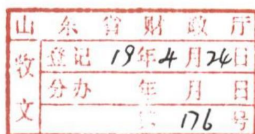 山东省财政厅
收文 登记 19年4月24日
分办 年月日
176号